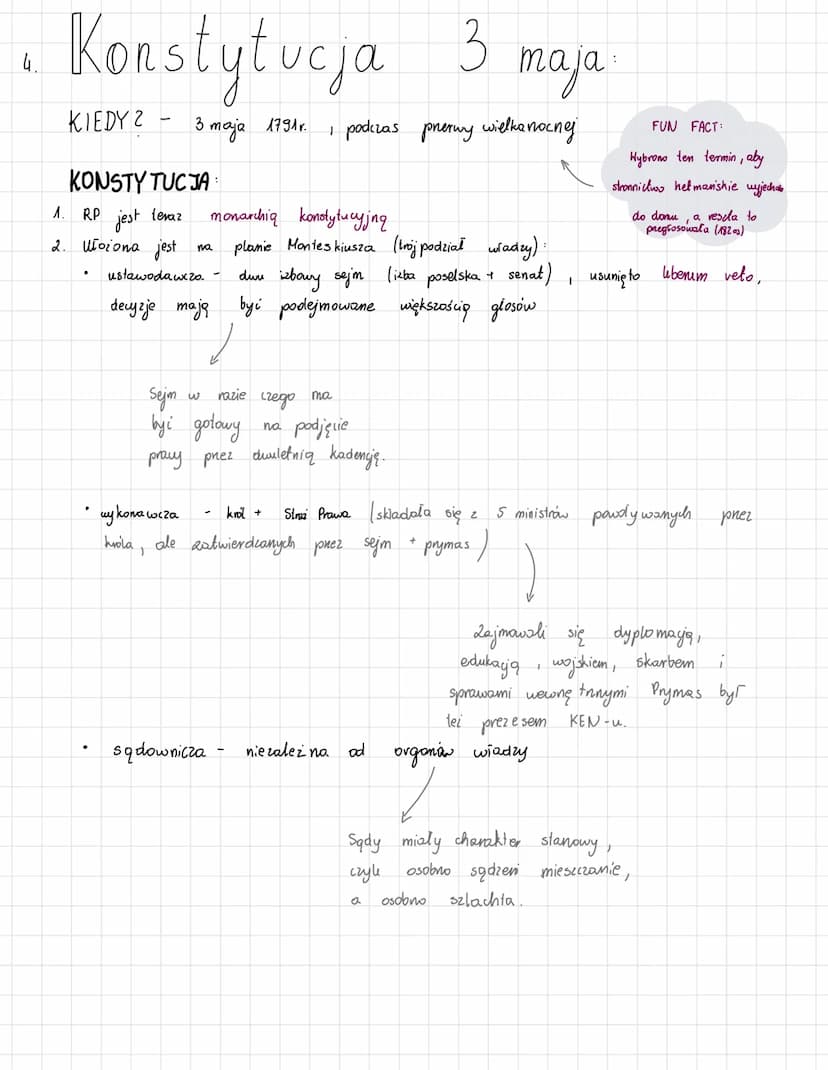 4. Konstytucja 3 maja:
KIEDY? - 3 maja 1791r. , podczas przerwy wielkanocnej
FUN FACT:
Wybrano ten termin, aby
stronnictwo hetmańskie wyjechało
do domu, a reszta to
przegłosowała (182os)
KONSTYTUCJA:
1. RP jest teraz monarchią konstytucyjną
2. Ułożona jest na planie Monteskiusza (trójpodział władzy):
• ustawodawcza - dwu izbowy sejm (izba poselska + senat) , usunięto liberum veto,
decyzje mają być podejmowane większością głosów
Sejm w razie czego ma
być gotowy na podjęcie
pracy przez dwuletnią kadencję.
• wykonawcza - król + Straż Prawa (składała się z 5 ministrów powoływanych przez
króla, ale zatwierdzanych przez sejm + prymas)
Zajmowali się dyplomacją,
edukacją , wojskiem, skarbem i
sprawami wewnętrznymi Prymas był
też prezesem KEN-u.
• sądownicza - niezależna od organów władzy
Sądy miały charakter stanowy,
czyli osobno sądzeni mieszczanie,
a osobno szlachta.